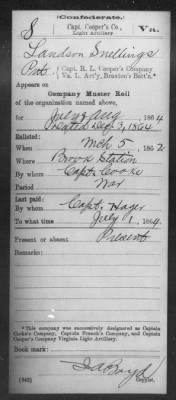 (Confederate.)
S Capt. Cooper's Co., Va.
Light Artillery
Landon Snellings
Pvt. Capt. R. L. Cooper's Company
Va. L. Art'y, Braxton's Batt'n.
Appears on
Company Muster Roll
of the organization named above,
for July & Aug, 1864
Dated Sept 3, 1864
Enlisted:
When Mch 5, 1862
Where Brook Station
By whom Capt. Cooke
Period War
Last paid:
By whom Capt. Hager
To what time July 1, 1864
Present or absent Present
Remarks:
*This company was successively designated as Captain
Cooke's Company, Captain French's Company, and Captain
Cooper's Company Virginia Light Artillery.
Book mark:
(642) Boyd
Copyist.